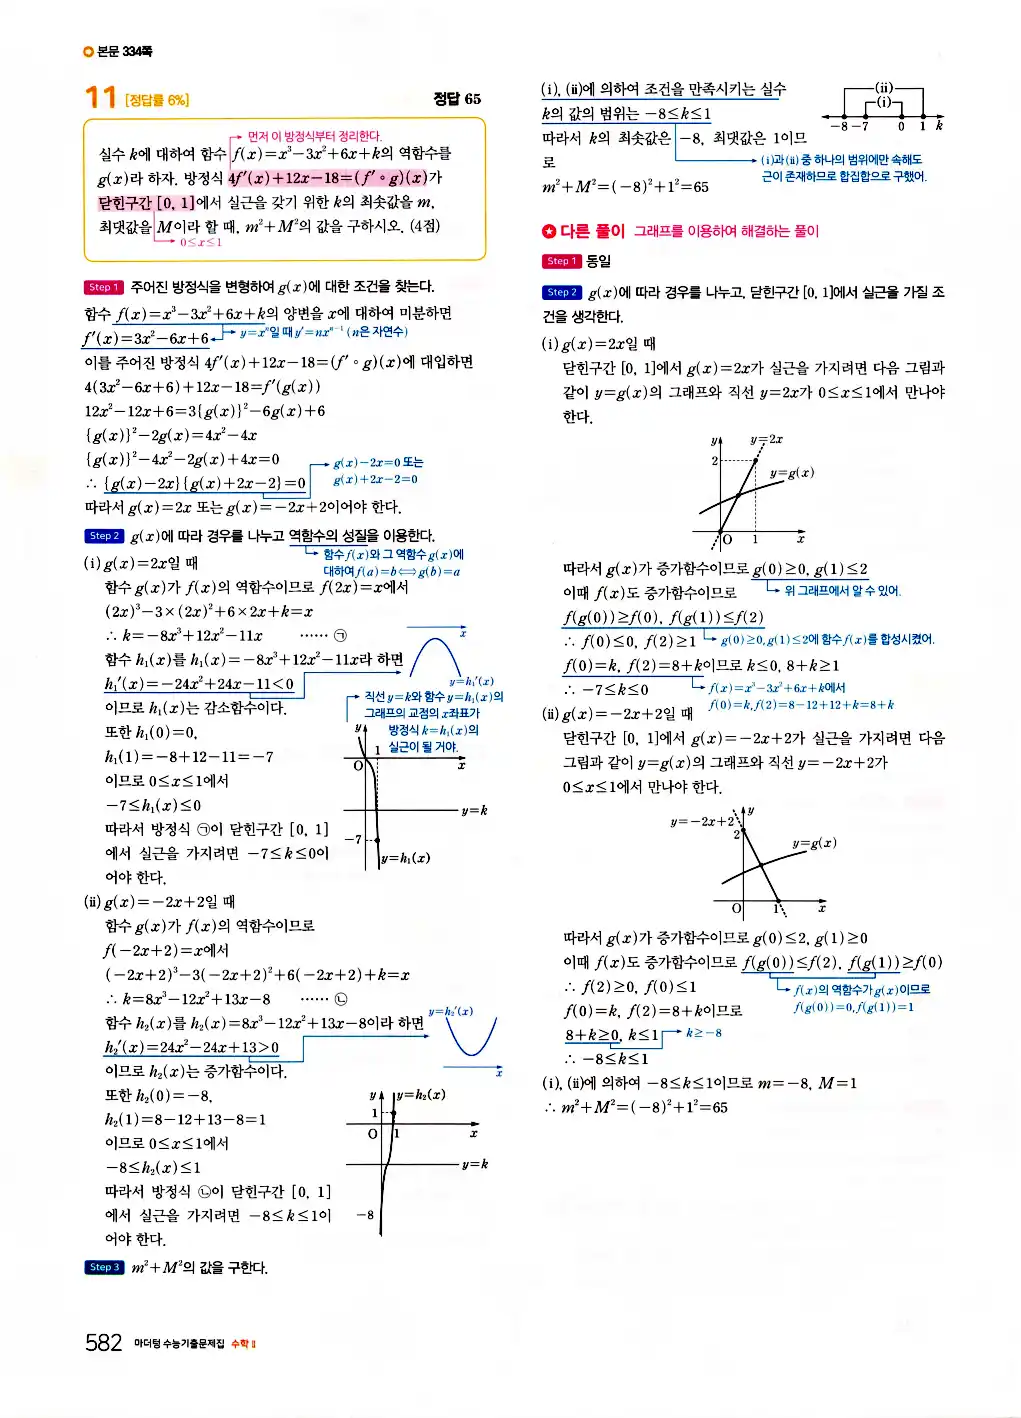 본문 334쪽
11 [정답률 6%] 정답 65
먼저 이 방정식부터 정리한다.
실수 k에 대하여 함수 f(x)=x³−3x²+6x+k의 역함수를
g(x)라 하자. 방정식 4f′(x)+12x−18=(f′∘g)(x)가
닫힌구간 [0, 1]에서 실근을 갖기 위한 k의 최솟값을 m,
최댓값을 M이라 할 때, m²+M²의 값을 구하시오. (4점)
0≤x≤1
Step 1 주어진 방정식을 변형하여 g(x)에 대한 조건을 찾는다.
함수 f(x)=x³−3x²+6x+k의 양변을 x에 대하여 미분하면
f′(x)=3x²−6x+6 y=xⁿ일 때 y′=nxⁿ⁻¹ (n은 자연수)
이를 주어진 방정식 4f′(x)+12x−18=(f′∘g)(x)에 대입하면
4(3x²−6x+6)+12x−18=f′(g(x))
12x²−12x+6=3{g(x)}²−6g(x)+6
{g(x)}²−2g(x)=4x²−4x
{g(x)}²−4x²−2g(x)+4x=0 g(x)−2x=0 또는
∴ {g(x)−2x}{g(x)+2x−2}=0 g(x)+2x−2=0
따라서 g(x)=2x 또는 g(x)=−2x+2이어야 한다.
Step 2 g(x)에 따라 경우를 나누고 역함수의 성질을 이용한다.
함수 f(x)와 그 역함수 g(x)에
대하여 f(a)=b⟺g(b)=a
(i) g(x)=2x일 때
함수 g(x)가 f(x)의 역함수이므로 f(2x)=x에서
(2x)³−3×(2x)²+6×2x+k=x
∴ k=−8x³+12x²−11x …… ㉠
함수 h₁(x)를 h₁(x)=−8x³+12x²−11x라 하면
x
y=h₁′(x)
h₁′(x)=−24x²+24x−11<0
이므로 h₁(x)는 감소함수이다.
직선 y=k와 함수 y=h₁(x)의
그래프의 교점의 x좌표가
방정식 k=h₁(x)의
실근이 될 거야.
또한 h₁(0)=0,
h₁(1)=−8+12−11=−7
이므로 0≤x≤1에서
−7≤h₁(x)≤0
따라서 방정식 ㉠이 닫힌구간 [0, 1]
에서 실근을 가지려면 −7≤k≤0이
어야 한다.
y 1
O x
y=k
−7
y=h₁(x)
(ii) g(x)=−2x+2일 때
함수 g(x)가 f(x)의 역함수이므로
f(−2x+2)=x에서
(−2x+2)³−3(−2x+2)²+6(−2x+2)+k=x
∴ k=8x³−12x²+13x−8 …… ㉡
함수 h₂(x)를 h₂(x)=8x³−12x²+13x−8이라 하면
y=h₂′(x)
x
h₂′(x)=24x²−24x+13>0
이므로 h₂(x)는 증가함수이다.
또한 h₂(0)=−8,
h₂(1)=8−12+13−8=1
이므로 0≤x≤1에서
−8≤h₂(x)≤1
따라서 방정식 ㉡이 닫힌구간 [0, 1]
에서 실근을 가지려면 −8≤k≤1이
어야 한다.
y y=h₂(x)
1
O 1 x
y=k
−8
Step 3 m²+M²의 값을 구한다.
(i), (ii)에 의하여 조건을 만족시키는 실수
k의 값의 범위는 −8≤k≤1
따라서 k의 최솟값은 −8, 최댓값은 1이므
로
m²+M²=(−8)²+1²=65
(ii)
(i)
−8 −7 0 1 k
(i)과 (ii) 중 하나의 범위에만 속해도
근이 존재하므로 합집합으로 구했어.
다른 풀이 그래프를 이용하여 해결하는 풀이
Step 1 동일
Step 2 g(x)에 따라 경우를 나누고, 닫힌구간 [0, 1]에서 실근을 가질 조
건을 생각한다.
(i) g(x)=2x일 때
닫힌구간 [0, 1]에서 g(x)=2x가 실근을 가지려면 다음 그림과
같이 y=g(x)의 그래프와 직선 y=2x가 0≤x≤1에서 만나야
한다.
y y=2x
2
y=g(x)
O 1 x
따라서 g(x)가 증가함수이므로 g(0)≥0, g(1)≤2
이때 f(x)도 증가함수이므로 위 그래프에서 알 수 있어.
f(g(0))≥f(0), f(g(1))≤f(2)
∴ f(0)≤0, f(2)≥1 g(0)≥0, g(1)≤2에 함수 f(x)를 합성시켰어.
f(0)=k, f(2)=8+k이므로 k≤0, 8+k≥1
∴ −7≤k≤0 f(x)=x³−3x²+6x+k에서
f(0)=k, f(2)=8−12+12+k=8+k
(ii) g(x)=−2x+2일 때
닫힌구간 [0, 1]에서 g(x)=−2x+2가 실근을 가지려면 다음
그림과 같이 y=g(x)의 그래프와 직선 y=−2x+2가
0≤x≤1에서 만나야 한다.
y=−2x+2 y
2
y=g(x)
O 1 x
따라서 g(x)가 증가함수이므로 g(0)≤2, g(1)≥0
이때 f(x)도 증가함수이므로 f(g(0))≤f(2), f(g(1))≥f(0)
∴ f(2)≥0, f(0)≤1 f(x)의 역함수가 g(x)이므로
f(0)=k, f(2)=8+k이므로 f(g(0))=0, f(g(1))=1
8+k≥0, k≤1 k≥−8
∴ −8≤k≤1
(i), (ii)에 의하여 −8≤k≤1이므로 m=−8, M=1
∴ m²+M²=(−8)²+1²=65
582 마더텅 수능기출문제집 수학 II